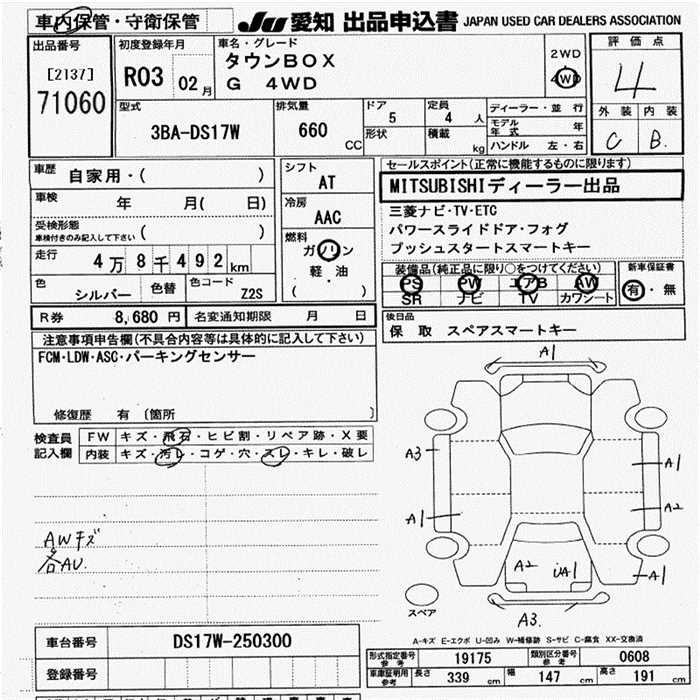 車内保管・守衛保管 JU 愛知 出品申込書 JAPAN USED CAR DEALERS ASSOCIATION
出品番号
[2137]
71060
初度登録年月
R03 02月
車名・グレード
タウンBOX
G 4WD
2WD
4WD
評価点
4
外装 内装
C B.
型式
3BA-DS17W
排気量
660 CC
ドア
5
形状
定員
4 人
積載
kg
ディーラー・並行
モデル年式 年
ハンドル 左・右
車歴
自家用・( )
車検
年 月( 日)
受検形態
車検付きのみ記入して下さい ( )
走行
4万8千492km
色
シルバー
色替
色コード
Z2S
シフト
AT
冷房
AAC
燃料
ガソリン
軽・油
( )
セールスポイント(正常に機能するものに限ります)
MITSUBISHIディーラー出品
三菱ナビ・TV・ETC
パワースライドドア・フォグ
プッシュスタートスマートキー
装備品(純正品に限り○をつけてください)
PS PW エアB AW
SR ナビ TV カワシート
新車保証書
有・無
R券 8,680円 名変通知期限 月 日
後日品
保 取 スペアスマートキー
注意事項申告欄(不具合内容等は具体的に記入して下さい)
FCM・LDW・ASC・パーキングセンサー
修復歴 有 〔箇所 〕
検査員
記入欄
FW キズ・飛石・ヒビ割・リペア跡・X要
内装 キズ・汚レ・コゲ・穴・スレ・キレ・破レ
AWキズ
各AU.
A1
A3
A1
A1
A2
A2
A1
A1
スペア
A3.
A-キズ E-エクボ U-凹み W-補修跡 S-サビ C-腐食 XX-交換済
車台番号 DS17W-250300
登録番号
形式指定番号
参考
19175
類別区分番号
参考
0608
車庫証明用
参考
長さ 339 cm
幅 147 cm
高さ 191 cm